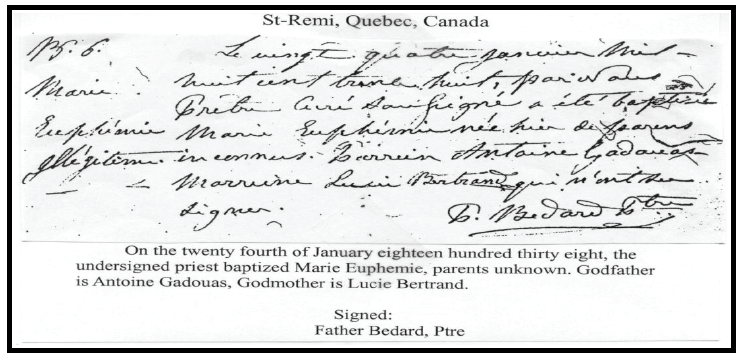 St-Remi, Quebec, Canada
B. 6. Le vingt quatre janvier mil
Marie huit cent trente huit, par nous
Prêtre Curé Soussigné a été baptisée
Euphémie Marie Euphémie née hier de parens
Illégitime inconnus. Parrein Antoine Gadouas
Marraine Lucie Bertrand qui n'ont su
signer. P. Bedard Ptre
On the twenty fourth of January eighteen hundred thirty eight, the
undersigned priest baptized Marie Euphemie, parents unknown. Godfather
is Antoine Gadouas, Godmother is Lucie Bertrand.
Signed:
Father Bedard, Ptre